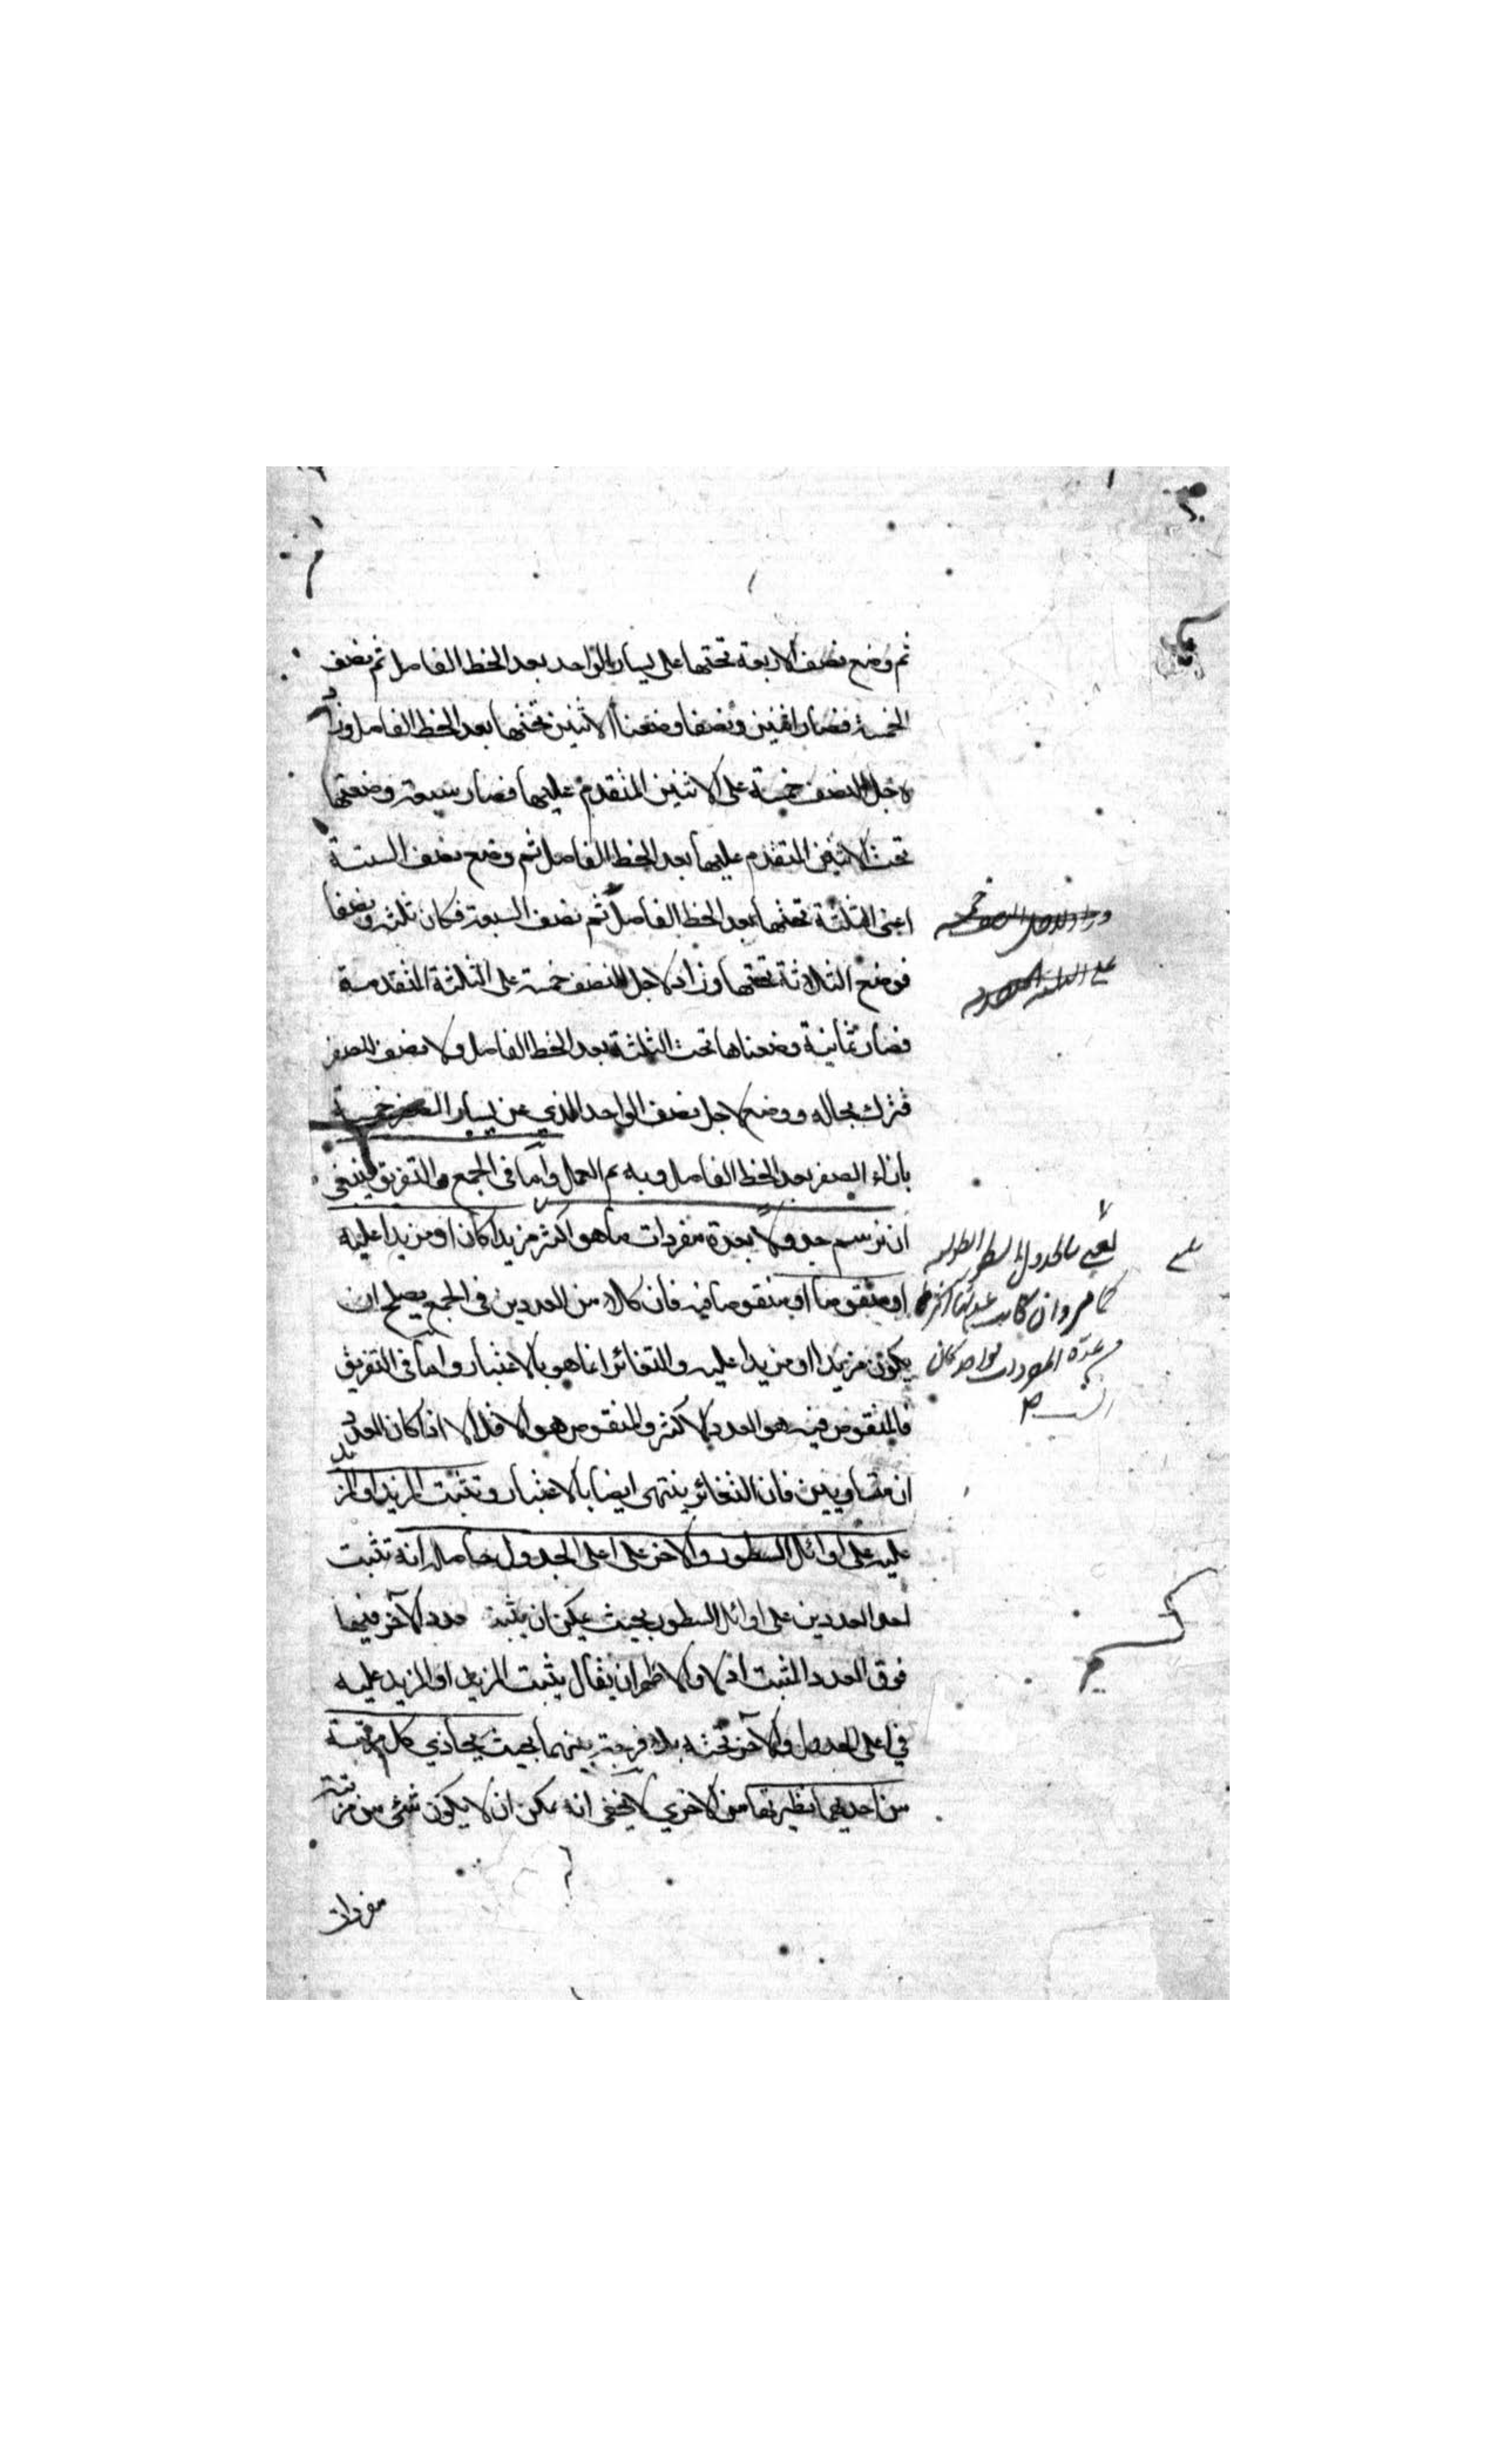 ثم وضع نصف الاربعة تحتها على يسار الواحد بعد الخط الفاصل ثم نصف
الخمسة فصار اثنين ونصفا وضعنا الاثنين تحتها بعد الخط الفاصل وزاد
لاجل النصف خمسة على الاثنين المتقدم عليها فصار سبعة وضعتها
تحت الاثنين المتقدم عليها بعد الخط الفاصل ثم وضع نصف الستة
اعنى الثلثة تحتها بعد الخط الفاصل ثم نصف السبعة فكان ثلثة ونصفا
فوضع الثلاثة تحتها وزاد لاجل النصف خمسة على الثلثة المتقدمة
فصار ثمانية وضعناها تحت الثلثة بعد الخط الفاصل ولا نصف للصفر
فترك بحاله ووضع لاجل نصف الواحد الذي عن يسار الصفر خمسة
بازاء الصفر بعد الخط الفاصل وبه تم العمل واما في الجمع والتفريق فينبغي
ان نرسم جدولا بعدة مفردات ما هو اكثر مزيدا كان او مزيدا عليه
او منقوصا او منقوصا فيه فان كلا من العددين في الجمع يصلح ان
يكون مزيدا او مزيدا عليه والتغائر انما هو بالاعتبار واما في التفريق
فالمنقوص فيه هو العدد الاكثر والمنقوص هو الاقل الا اذا كان العدد
ان متساويين فان التغائر ينتهى ايضا بالاعتبار وتثبت المزيد او المزيد
عليه على اوائل السطور والاخر على اعلى الجدول حاصله انه تثبت
احد العددين على اوائل السطور بحيث يمكن ان يثبت عدد الآخر فيها
فوق العدد المثبت اولا والاظهر ان يقال يثبت المزيد او المزيد عليه
في اعلى الجدول والآخر تحته بلا فرجة بينهما بحيث يحاذي كل مرتبة
من احديهما نظيرتها من الاخري لا يخفى انه يمكن ان لا يكون شئ من مرتبة
مفردات
وزاد لاجل النصف خمسة
على الثلثة
يعني بالجدول السطر الطولي
كما مر وان كانت
عدة المفردات بواحد كان